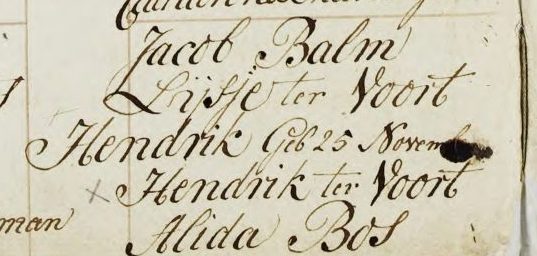 Jacob Balm
Lijsje ter Voort
Hendrik Geb 25 Novemb
man Hendrik ter Voort
Alida Bos